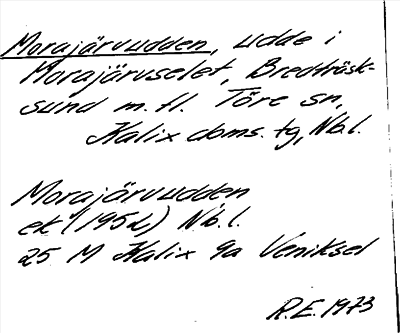 Morajärvudden, udde i
Morajärvselet, Bredträsk-
sund m. fl. Töre sn,
Kalix doms. tg, Nb.l.
Morajärvudden
ek (1952) Nb.l.
25 M Kalix 9a Veniksel
R.E. 1973